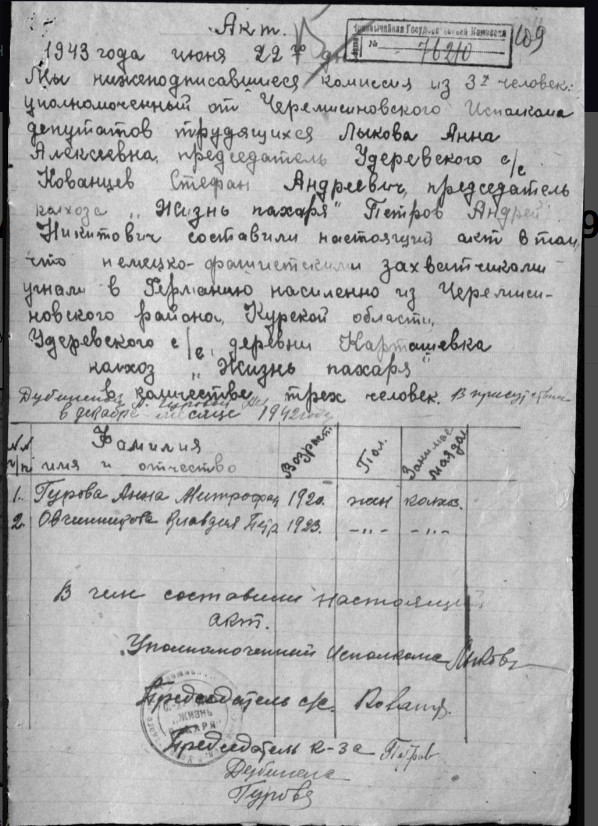 Акт.
Чрезвычайная Государственная Комиссия
№ 76210
109
1943 года июня 22го д.
Мы ниженодписавшиеся комиссия из 3х человек:
уполномоченный от Черемисиновского Исполкома
депутатов трудящихся Лыкова Анна
Алексеевна, председатель Удеревского с/с
Кованцев Стефан Андреевич, председатель
колхоза „Жизнь пахаря" Петров Андрей
Никитович составили настоящий акт в том,
что немецко-фашистскими захватчиками
угнали в Германию насиленно из Черемиси-
новского района, Курской области,
Удеревского с/с, деревни Карташевка
колхоз „Жизнь пахаря"
в количестве трех человек. В присутствии
в декабре месяце 1942 года
№№ п/п
Фамилия
имя и отчество
Возраст
Пол.
Занимае
1. Гурова Анна Митрофан 1920. жен колхо.
2. Овчинникова Клавдия Петр 1923. -„- -„-
В чем составили настоящий
акт.
Уполномоченный Исполкома Лыкова
Председатель с/с. Кованц.
„ЖИЗНЬ
ПАХАРЯ"
Председатель к-за Петров
Гурова